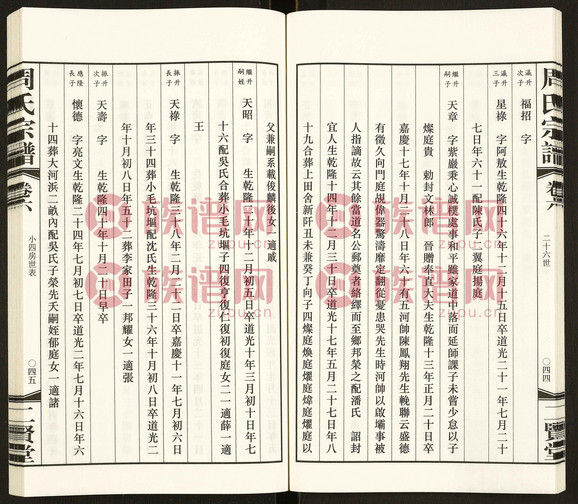 周氏宗譜
卷六
二十六世
〇四四
二賢堂
瀛升次子
福招 字
瀛升三子
星祿 字阿放生乾隆四十六年十二月十五日卒道光二十一年七月二十
七日年六十一配陳氏子二翼庭揚庭
繼升嗣子
天章 字紫巖秉心誠樸處事和平雖家道中落而延師課子未嘗少怠以子
燦庭貴 勅封文林郎 晉贈奉直大夫生乾隆十三年正月二十日卒
嘉慶十七年十月二十八日年六十有五河帥陳鳳翔先生輓聯云盛德
有徵久向門庭覘偉器驚濤靡定翻從憂患哭先生時河帥以啟壩事被
人指謫故云其餘當道名公郵奠者絡繹而至鄉邦榮之配潘氏 詔封
宜人生乾隆十四年十二月三十日卒道光十七年五月二十七日年八
十九合葬上田舍新阡丑未兼癸丁向子四燦庭煥庭燿庭煒庭燿庭以
父兼嗣系載俊麟後女一適戚
繼升嗣姪
天昭 字 生乾隆五十年十二月初五日卒道光十年三月初十日年七
十六配吳氏合葬小毛坑堰子四復亨復仁復初復庭女二一適薛一適
王
振升長子
天祿 字 生乾隆三十八年二月二十二日卒嘉慶十一年七月初六日
年三十四葬小毛坑堰配沈氏生乾隆三十六年十月初八日卒道光二
年十月初八日年五十二葬李家田子一邦耀女一適張
振升次子
天壽 字 生乾隆四十年十月二十日早卒
應隆長子
懷德 字亮文生乾隆二十四年七月初七日卒道光二年七月十六日年六
十四葬大河浜二畝內配吳氏子榮先夭嗣姪郁庭女一適諸
周氏宗譜
卷六
小四房世表
〇四五
二賢堂
族谱网
zupu.cn